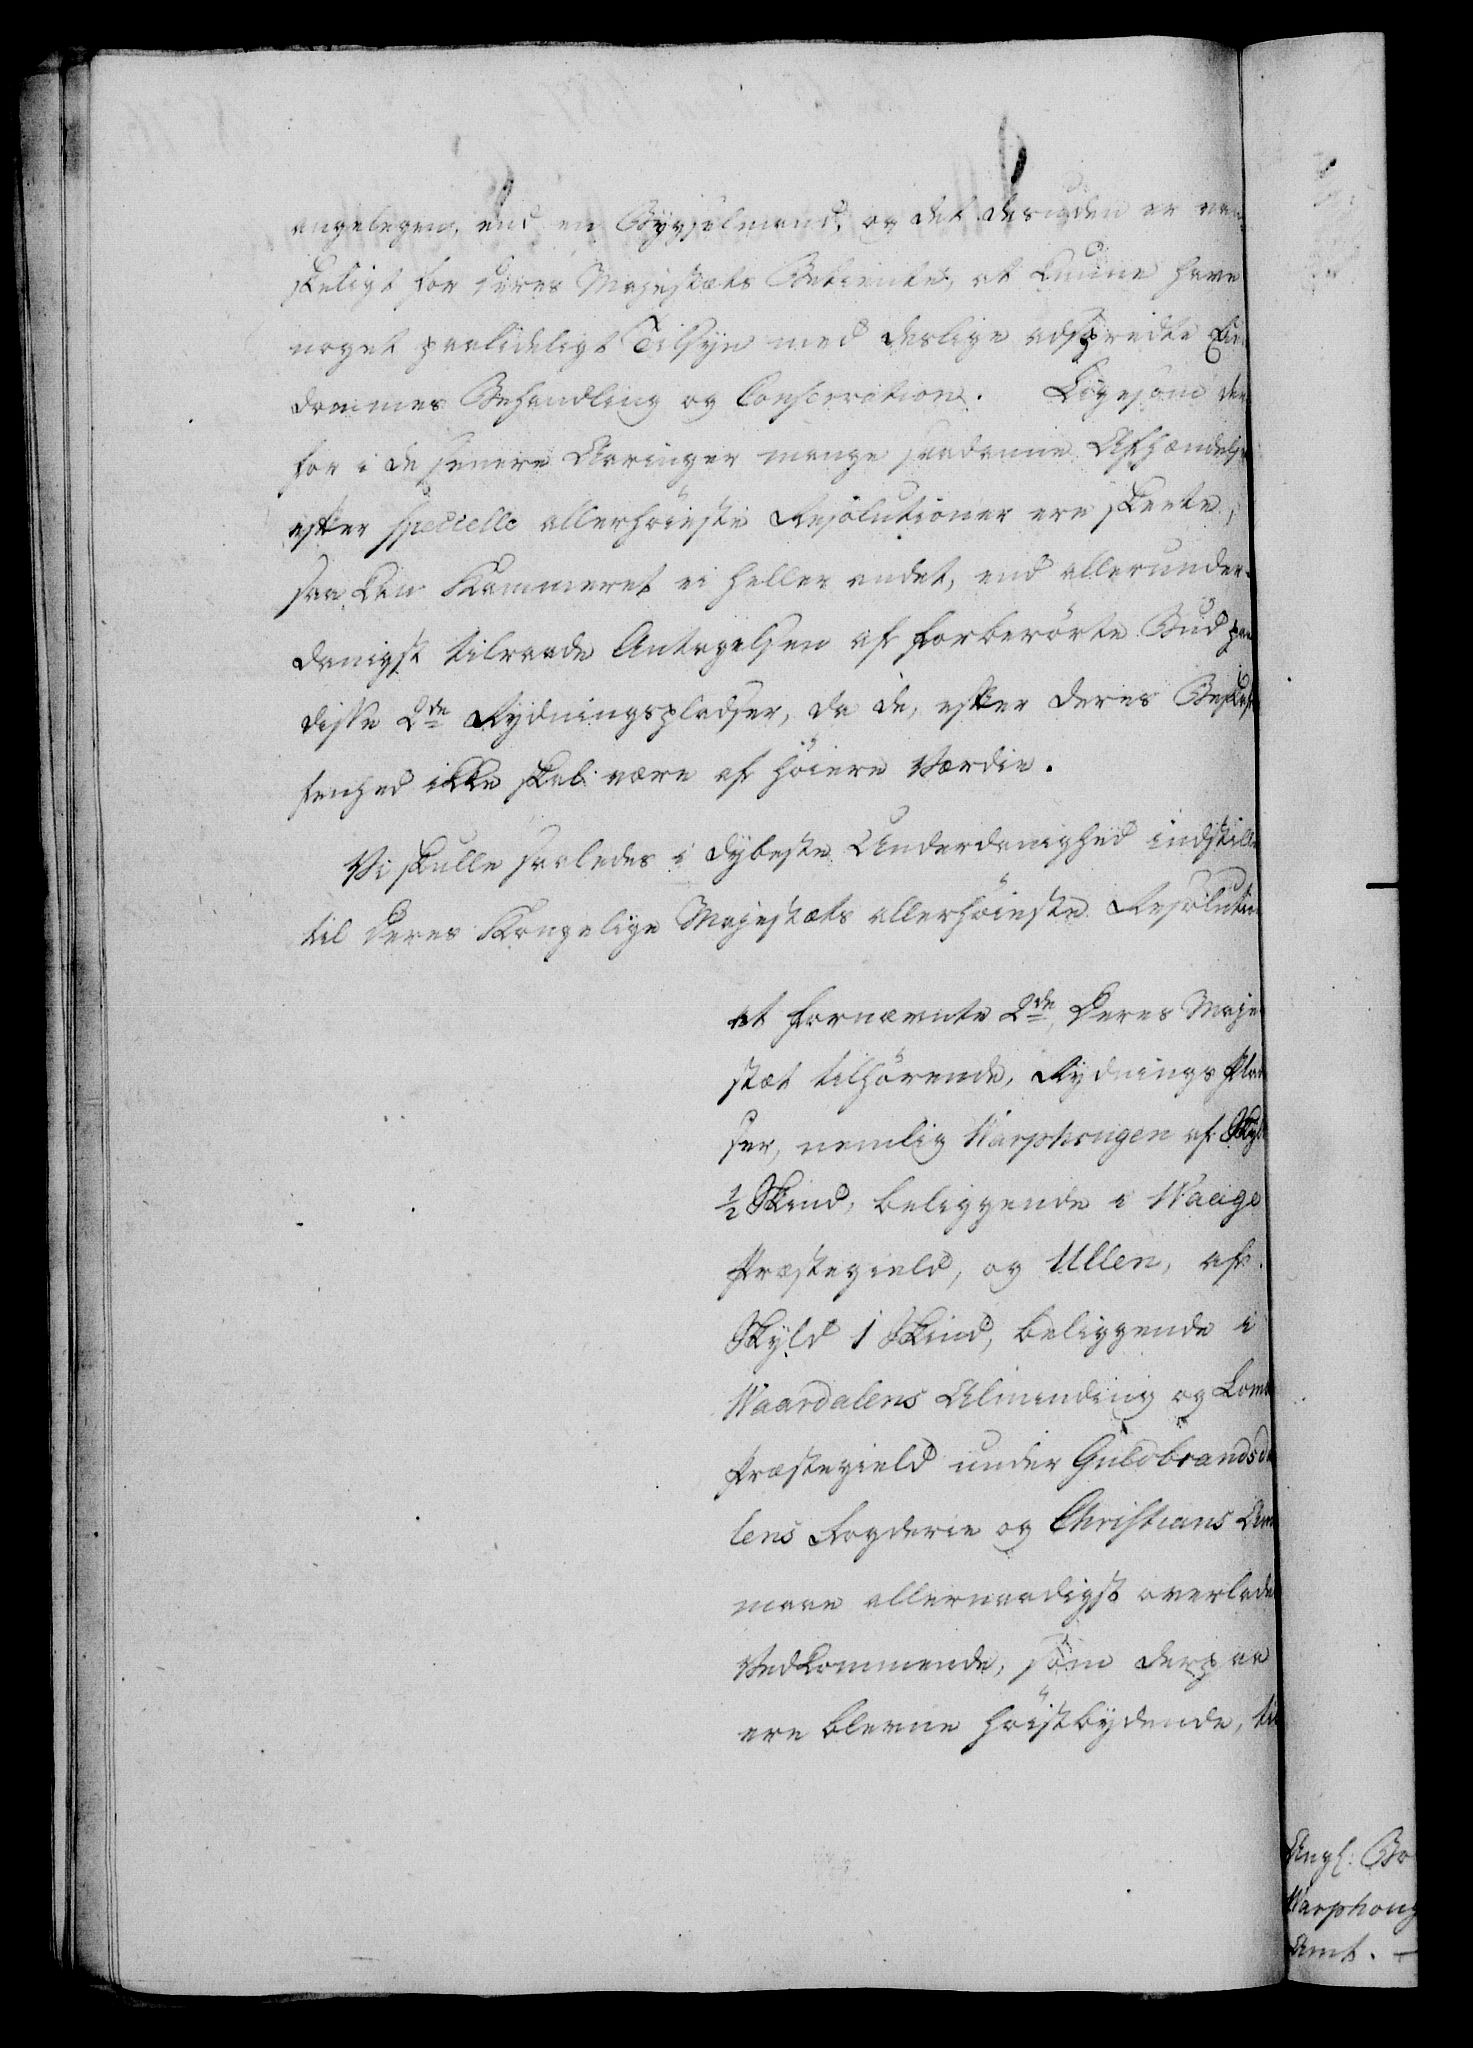 angelegen, end en Bygselmand, og det desuden er van
skeligt for Deres Majestæts Betiente, at kunne have
noget paalideligt Tilsyn med deslige adspredte Eien
dommes Behandling og Conservation. Ligesom der
for i de senere Aaringer mange saadanne Afhændelser
efter specielle allerhöieste Resolutioner ere skeete,
saa kan Kammeret ei heller andet, end allerunder-
danigst tilraade Antagelsen af forberörte Bud paa
disse 2de Rydningspladser, da de, efter deres Beskaf
fenhed ikke skal være af höiere Værdie.
Vi skulle saaledes i dybeste Underdanighed indstille
til Deres Kongelige Majestæts allerhöieste Resolution
at fornævnte 2de, Deres Maje
stæt tilhörende, Rydnings Plad
ser, nemlig Warphougen af Skyld
1/2 Skind, beliggende i Waage
Præstegield, og Ullen, af
Skyld 1 Skind, beliggende i
Waardalens Alminding og Loms
Præstegield under Guldbrandsda
lens Fogderie og Christians Amt
maae allernaadigst overlades
Vedkommende, som derpaa
ere blevne höistbydende, til
Angl. Bo
Warphoug
Amt. -